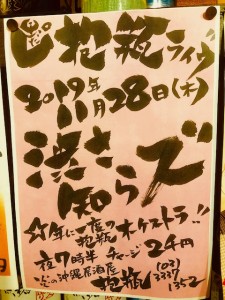 抱瓶ライヴ
2019年
11月28日(木)
渋さ
知らズ
年に一度の
抱瓶オーケストラ!!
夜7時半 チャージ2千円
の沖縄居酒屋
抱瓶
(03)
3337
1352